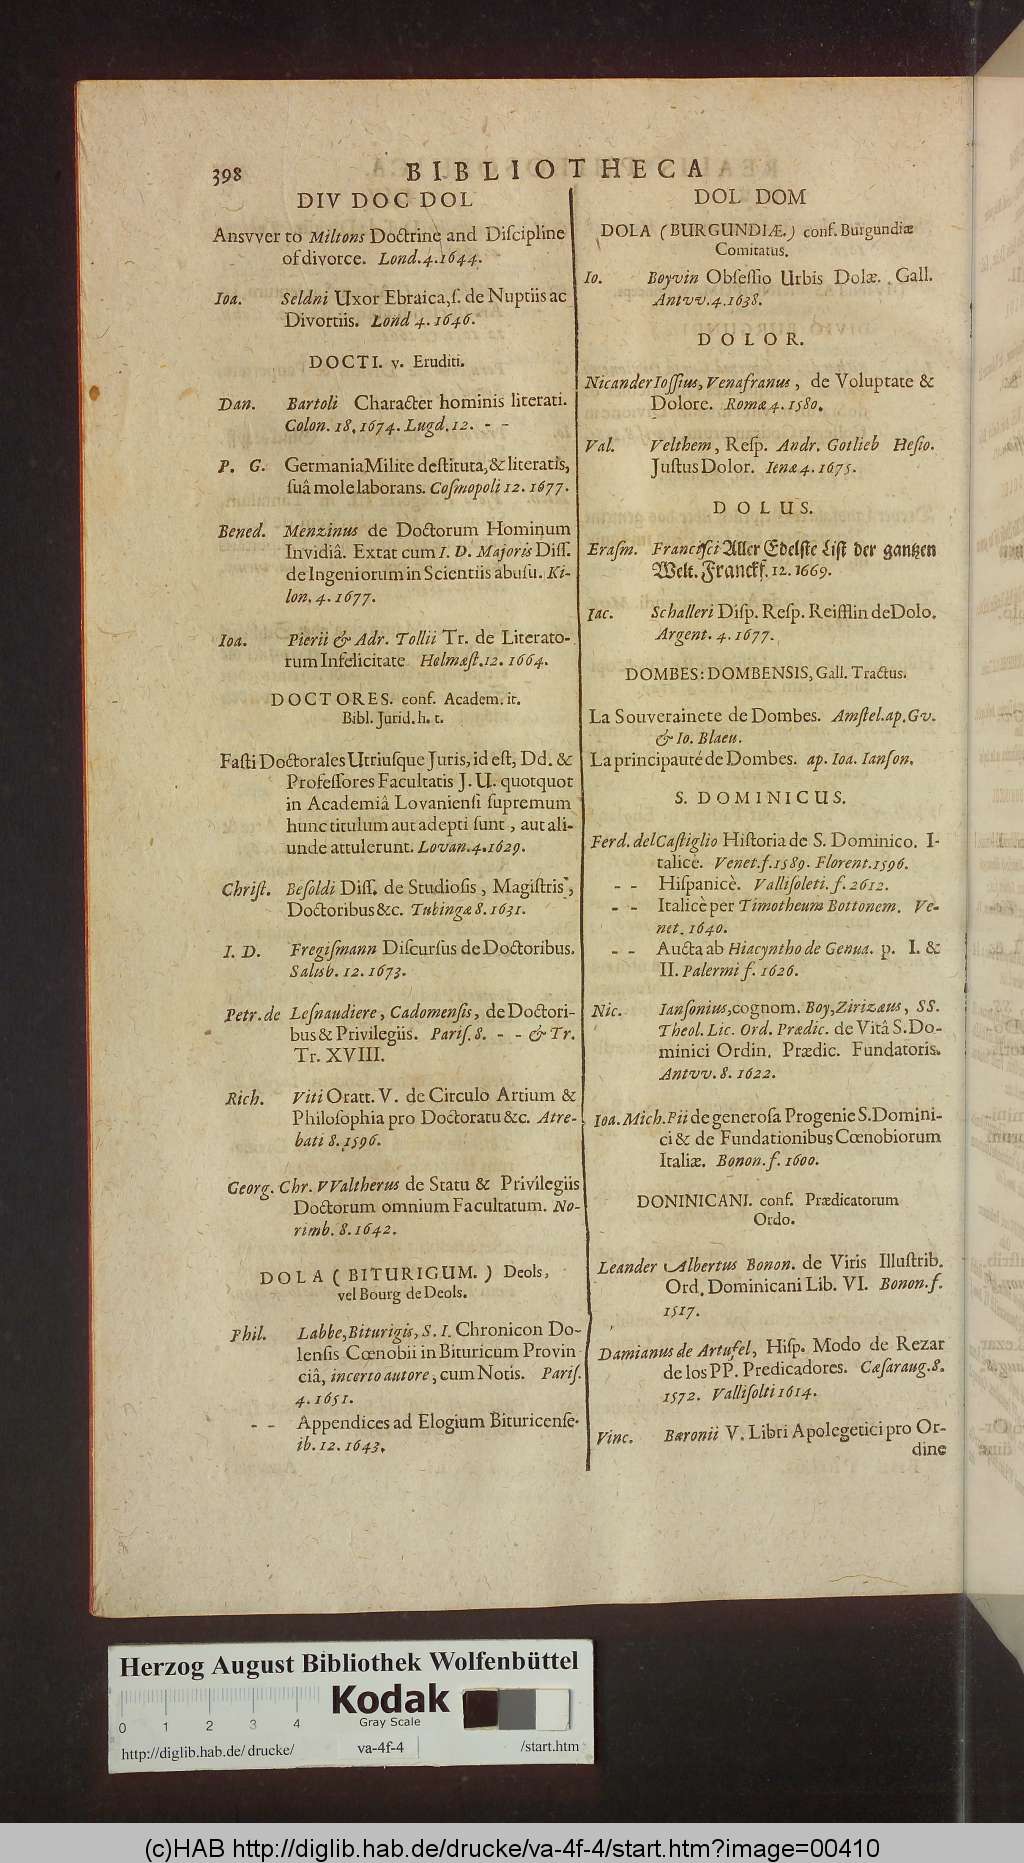 398
BIBLIOTHECA
DIV DOC DOL
Anſvver to Miltons Doctrine and Diſcipline
of divorce. Lond. 4. 1644.
Ioa. Seldni Uxor Ebraica, ſ. de Nuptiis ac
Divortiis. Lond 4. 1646.
DOCTI. v. Eruditi.
Dan. Bartoli Character hominis literati.
Colon. 18. 1674. Lugd. 12. - -
P. G. Germania Milite deſtituta, & literatis,
ſuâ mole laborans. Coſmopoli 12. 1677.
Bened. Menzinus de Doctorum Hominum
Invidiâ. Extat cum I. D. Majoris Diſſ.
de Ingeniorum in Scientiis abuſu. Ki-
lon. 4. 1677.
Ioa. Pierii & Adr. Tollii Tr. de Literato-
rum Infelicitate Helmæſt. 12. 1664.
DOCTORES. conf. Academ. it.
Bibl. Jurid. h. t.
Faſti Doctorales Utriuſque Juris, id eſt, Dd. &
Profeſſores Facultatis J. U. quotquot
in Academiâ Lovanienſi ſupremum
hunc titulum aut adepti ſunt, aut ali-
unde attulerunt. Lovan. 4. 1629.
Chriſt. Beſoldi Diſſ. de Studioſis, Magiſtris,
Doctoribus &c. Tubingæ 8. 1631.
I. D. Fregiſmann Diſcurſus de Doctoribus.
Salisb. 12. 1673.
Petr. de Leſnaudiere, Cadomenſis, de Doctori-
bus & Privilegiis. Pariſ. 8. - - & Tr.
Tr. XVIII.
Rich. Viti Oratt. V. de Circulo Artium &
Philoſophia pro Doctoratu &c. Atre-
bati 8. 1596.
Georg. Chr. VValtherus de Statu & Privilegiis
Doctorum omnium Facultatum. No-
rimb. 8. 1642.
DOLA (BITURIGUM.) Deols,
vel Bourg de Deols.
Phil. Labbe, Biturigis, S. I. Chronicon Do-
lenſis Cœnobii in Bituricum Provin
ciâ, incerto autore, cum Notis. Pariſ.
4. 1651.
- - Appendices ad Elogium Bituricenſe.
ib. 12. 1643.
DOL DOM
DOLA (BURGUNDIÆ.) conf. Burgundiæ
Comitatus.
Io. Boyvin Obſeſſio Urbis Dolæ. Gall.
Antvv. 4. 1638.
DOLOR.
Nicander Ioſſius, Venafranus, de Voluptate &
Dolore. Romæ 4. 1580.
Val. Velthem, Reſp. Andr. Gotlieb Heſio.
Juſtus Dolor. Ienæ 4. 1675.
DOLUS.
Eraſm. Franciſci Aller Edelſte Liſt der gantzen
Welt. Franckf. 12. 1669.
Iac. Schalleri Diſp. Reſp. Reifflin de Dolo.
Argent. 4. 1677.
DOMBES: DOMBENSIS, Gall. Tractus.
La Souverainete de Dombes. Amſtel. ap. Gv.
& Io. Blaeu.
La principauté de Dombes. ap. Ioa. Ianſon.
S. DOMINICUS.
Ferd. del Caſtiglio Hiſtoria de S. Dominico. I-
talicè. Venet. f. 1589. Florent. 1596.
- - Hiſpanicè. Valliſoleti. f. 2612.
- - Italicè per Timotheum Bottonem. Ve-
net. 1640.
- - Aucta ab Hiacyntho de Genua. p. I. &
II. Palermi f. 1626.
Nic. Ianſonius, cognom. Boy, Zirizæus, SS.
Theol. Lic. Ord. Prædic. de Vitâ S. Do-
minici Ordin. Prædic. Fundatoris.
Antvv. 8. 1622.
Ioa. Mich. Pii de generoſa Progenie S. Domini-
ci & de Fundationibus Cœnobiorum
Italiæ. Bonon. f. 1600.
DONINICANI. conf. Prædicatorum
Ordo.
Leander Albertus Bonon. de Viris Illuſtrib.
Ord. Dominicani Lib. VI. Bonon. f.
1517.
Damianus de Artufel, Hiſp. Modo de Rezar
de los PP. Predicadores. Cæſaraug. 8.
1572. Valliſolti 1614.
Vinc. Baronii V. Libri Apolegetici pro Or-
dine
Herzog August Bibliothek Wolfenbüttel
Kodak
Gray Scale
0 1 2 3 4
http://diglib.hab.de/drucke/ va-4f-4 /start.htm
(c)HAB http://diglib.hab.de/drucke/va-4f-4/start.htm?image=00410